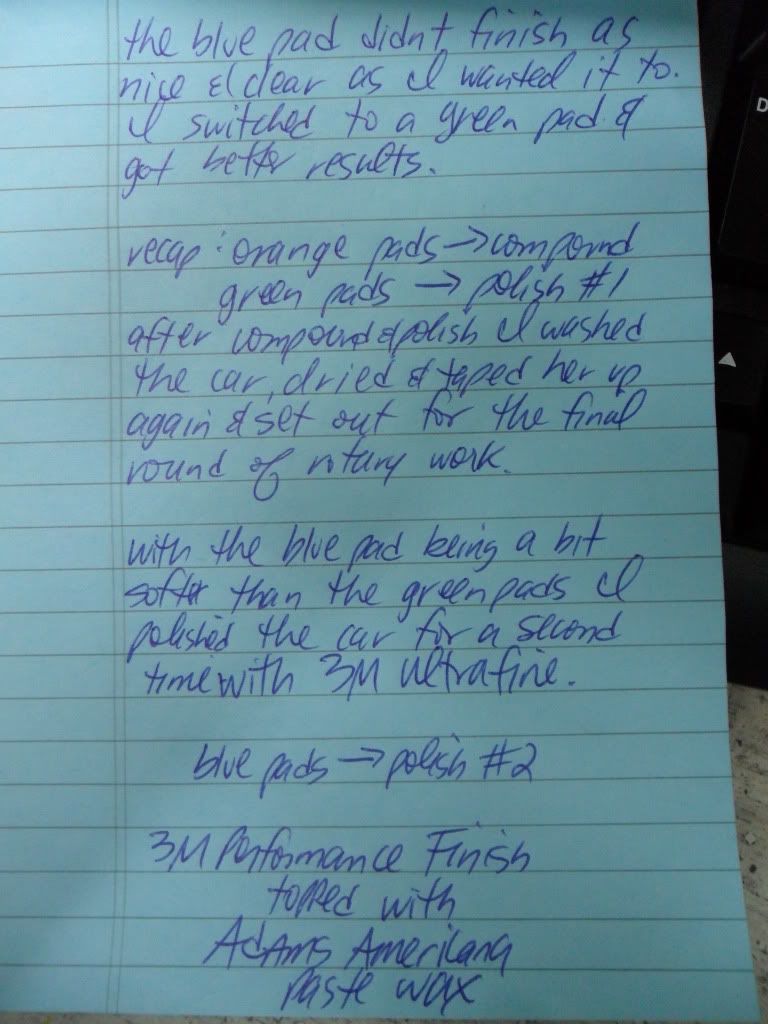 the blue pad didnt finish as
nice & clear as I wanted it to.
I switched to a green pad &
got better results.
recap: orange pads → compound
green pads → polish #1
after compound & polish I washed
the car, dried & taped her up
again & set out for the final
round of rotary work.
with the blue pad being a bit
softer than the green pads I
polished the car for a second
time with 3M Ultrafine.
blue pads → polish #2
3M Performance Finish
topped with
Adams Americana
paste wax